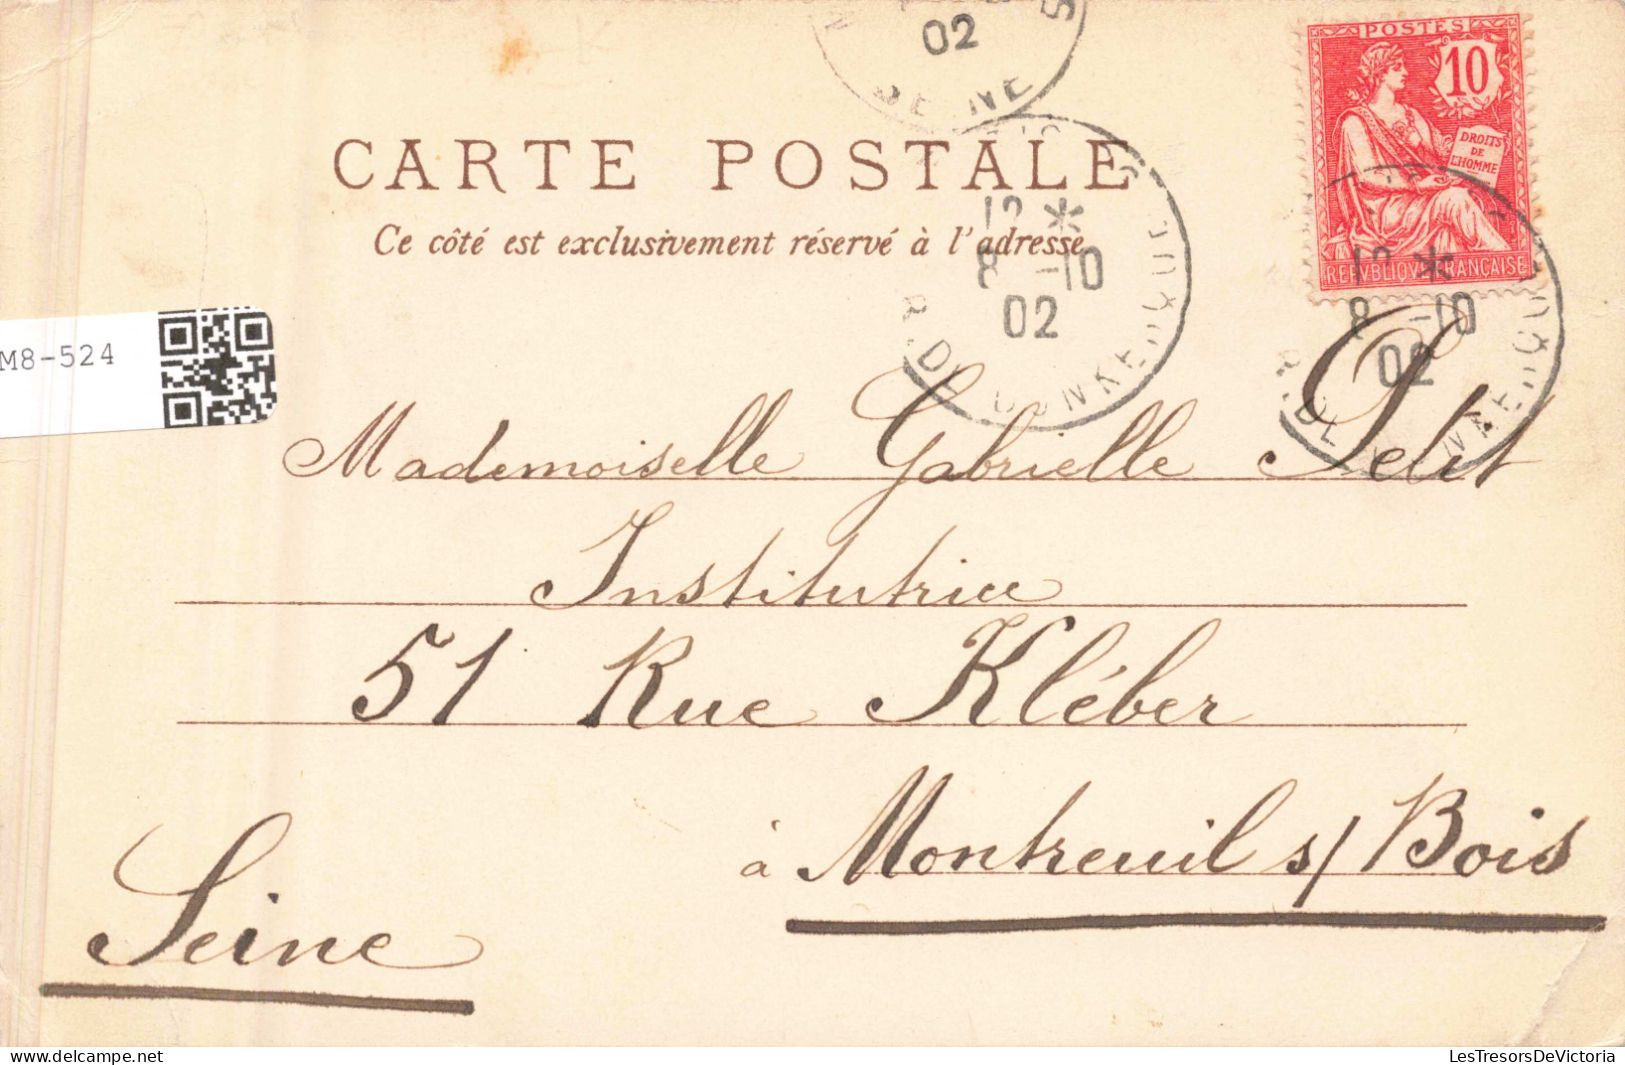 02
5
SEINE
POSTES
10
CARTE POSTALE
DROITS
DE
L'HOMME
Ce côté est exclusivement réservé à l'adresse
12 *
8 -10
02
12 *
8 -10
02
REPVBLIQVE FRANÇAISE
M8-524
Mademoiselle Gabrielle Petit
Institutrice
51 Rue Kléber
à Montreuil s/ Bois
Seine
LesTresorsDeVictoria